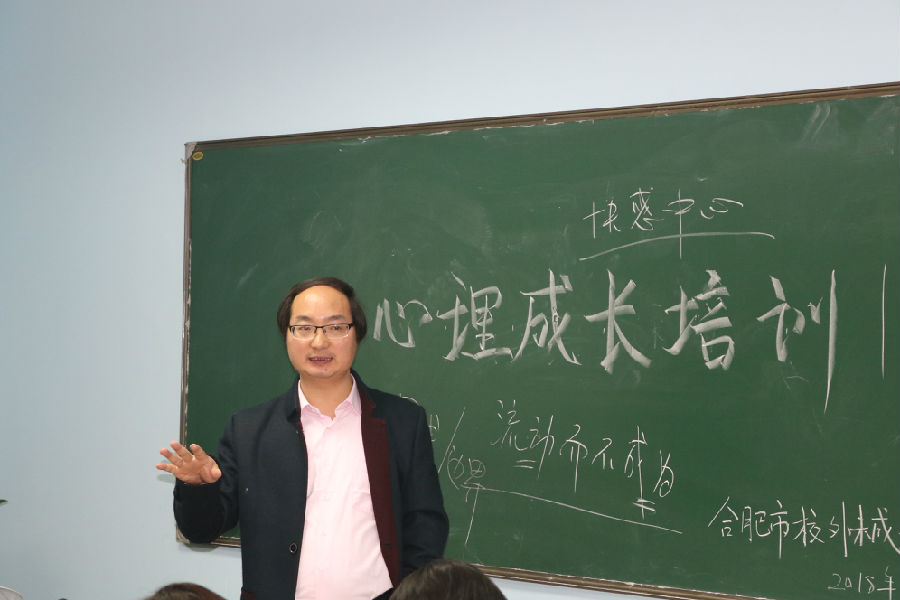 中心
心理成长培训
流动而不成为
合肥市校外未成
2018年